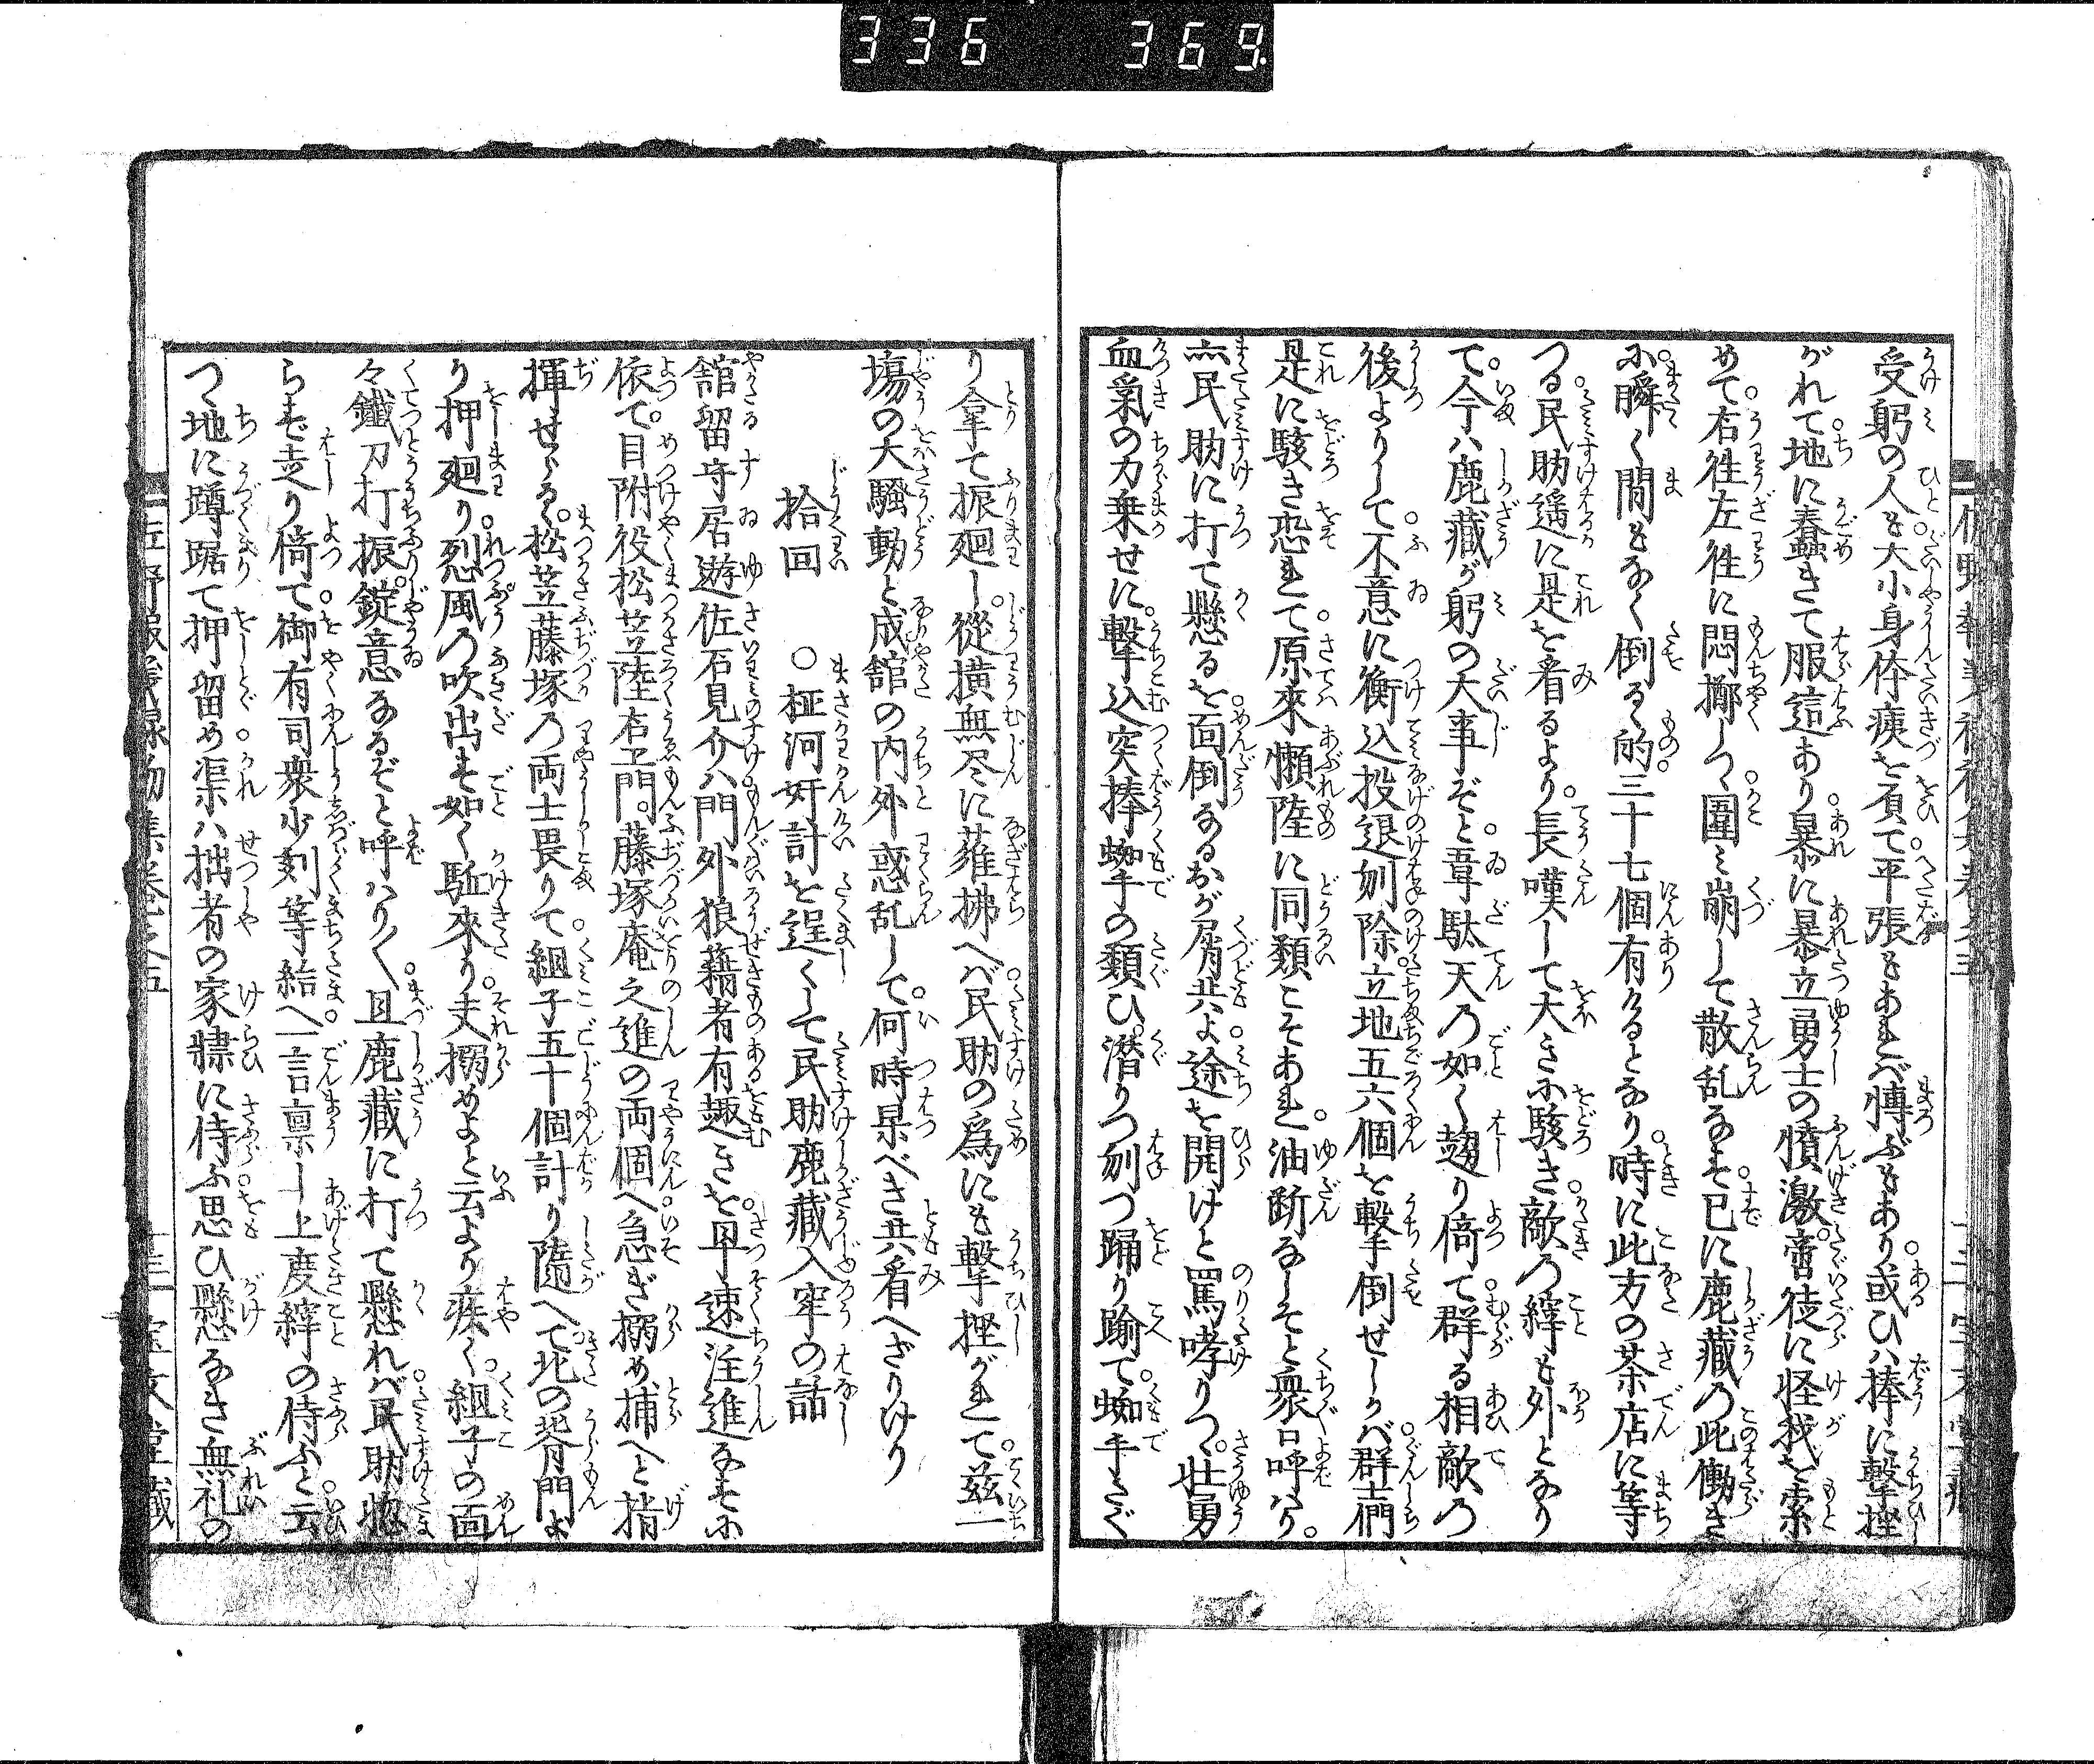 336 369
受躬の人も。大小身体痍を負て。平張もあれバ慱ぶもあり。或ひハ捧に撃挫
がれて。地に蠢きて服這あり。暴に暴立勇士の憤激。啻徒に怪我を索
めて。右徃左徃に悶擲しつ。圍ミ崩して散乱なす。已に鹿藏乃此働き
に。瞬く間もなく倒るゝ的。三十七個有けるとなり。時に此方の茶店に等
つる。民助遥に是を看るより。長嘆して大きに駭き。敵乃縡も外となり
て。今ハ鹿藏が躬の大事ぞと。韋駄天乃如く趨り倚て。群る相敵乃
後よりして。不意に衝込投退刎除。立地五六個を撃倒せしかバ。群士們
是に駭き恐れて。原來懶陸に同類こそあれ。油断なしそと衆口呼ハり。
亦民助に打て懸るを。面倒なるおが屑共よ。途を開けと罵哮りつゝ。壮勇
血氣の力乗せに。撃込突捧蜘手の類ひ。潜りつ刎つ踊り踰て。蜘手さぐ
り拿て振廻し。從横無尽に薙拂へバ。民助の為にも撃挫がれて。茲一
塲の大騒動と成。舘の内外惑乱して。何時杲べき共看へざりけり
拾回　○柾河奸計を逞くして民助鹿藏入牢の話
舘留守居遊佐石見介ハ。門外狼藉者有趣きを。早速注進なすに
依て。目附役松笠陸右エ門。藤塚庵之進の両個へ。急ぎ搦め捕へと指
揮せらるゝ。松笠藤塚乃両士畏りて。組子五十個計り隨へて。北の脊門よ
り押廻り。烈風乃吹出す如く駈來り。夫搦めよと云より疾く。組子の面
々鐵刀打振。錠意なるぞと呼ハり〳〵。且鹿藏に打て懸れバ。民助惣
らず走り倚て。御有司衆少刻等給へ。一言禀し上度縡の侍ふと。云
つゝ地に蹲踞て押留め。渠ハ拙者の家隷に侍ふ。思ひ懸なき無礼の